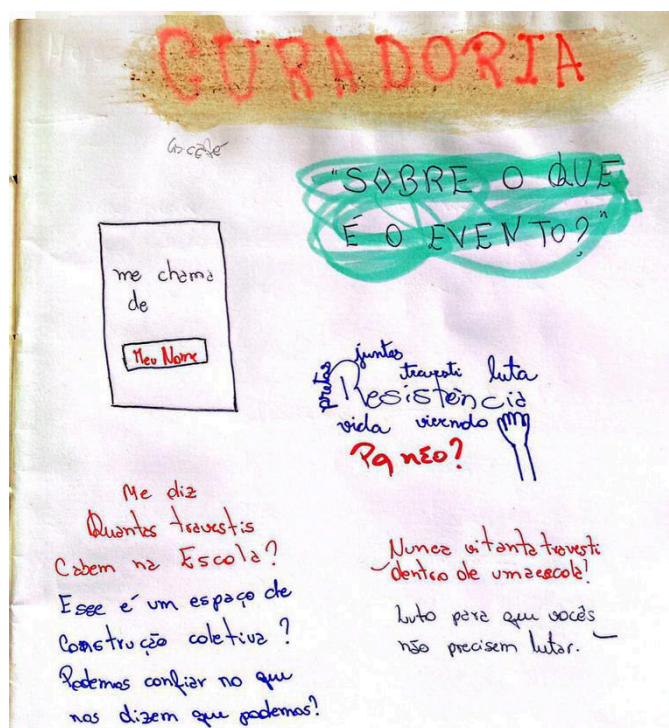 CURADORIA
"SOBRE O QUE
É O EVENTO?"
me chama
de
Meu Nome
pretas juntas travesti luta
Resistência
vida vivendo
Pq não?
Me diz
Quantas travestis
Cabem na Escola?
Esse é um espaço de
Construção coletiva?
Podemos confiar no que
nos dizem que podemos?
Nunca vi tanta travesti
dentro de uma escola!
Luto para que vocês
não precisem lutar.